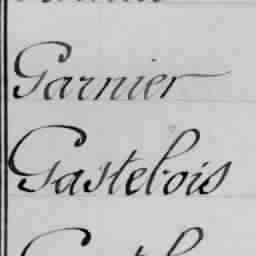 Garnier
Gastebois